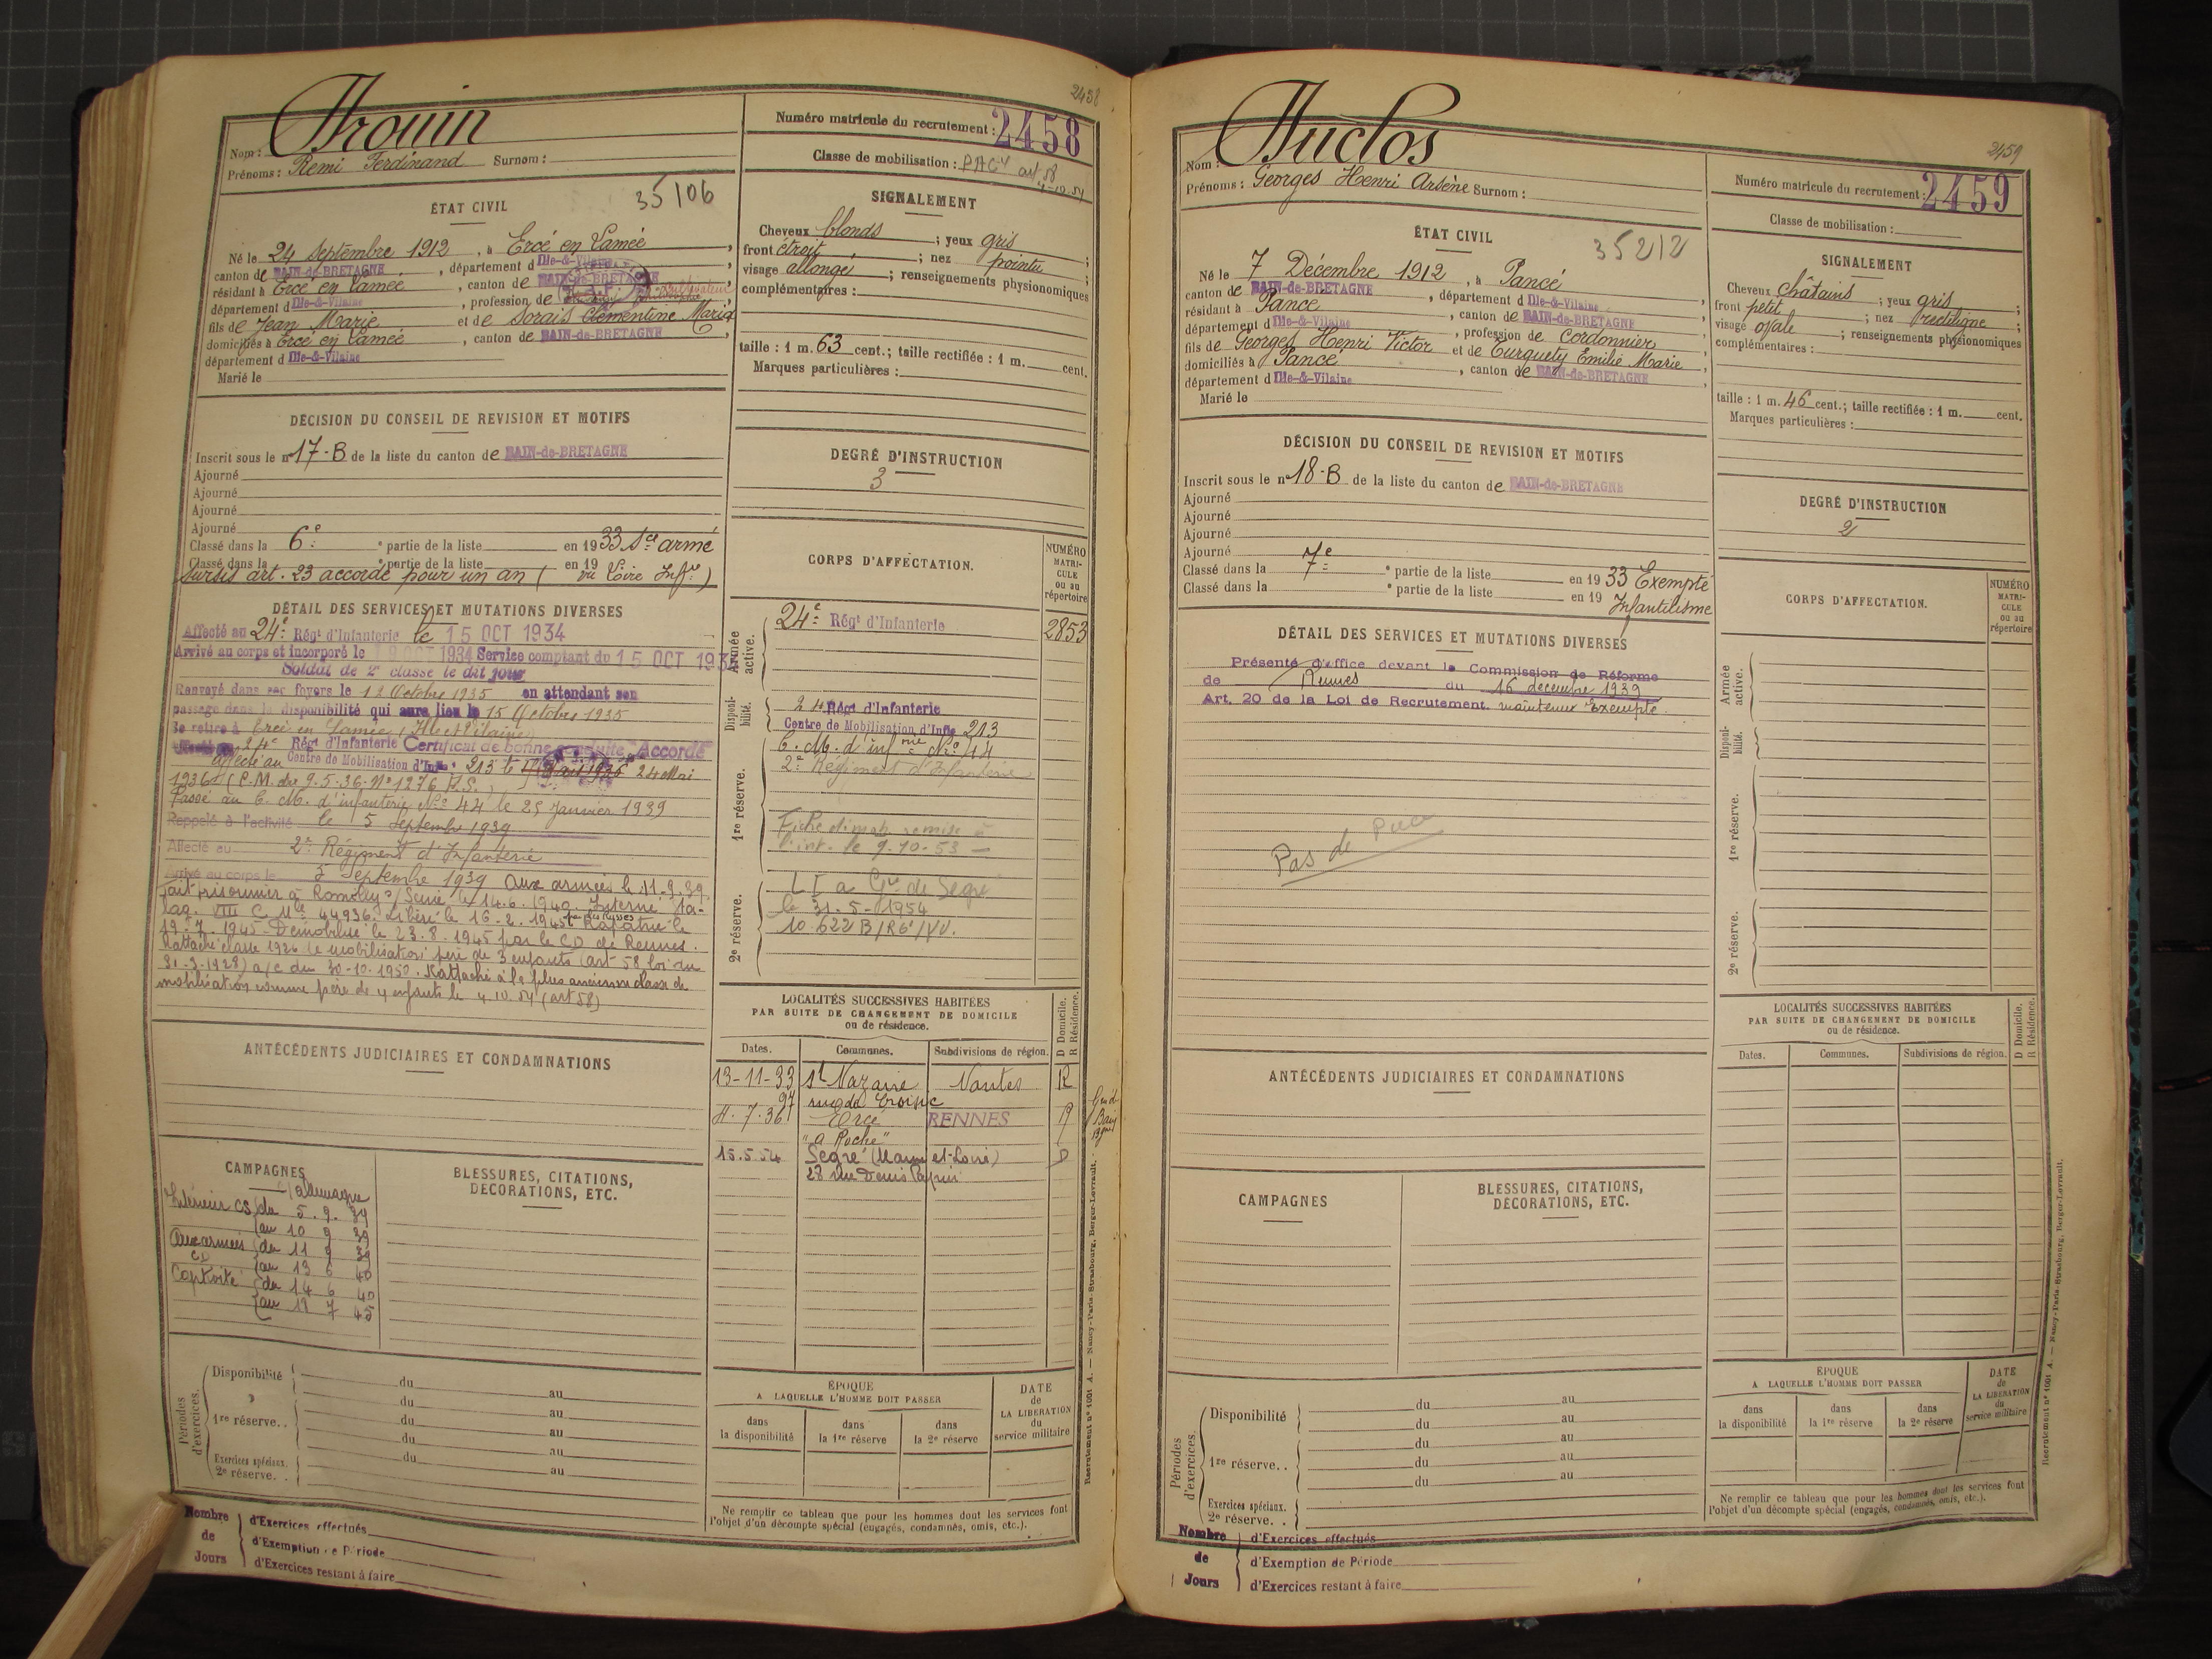 2458
Nom : Drouin
Prénoms : Remi Ferdinand Surnom :
Numéro matricule du recrutement : 2458
Classe de mobilisation : PAC art. 58
4-10-54
ÉTAT CIVIL
35106
Né le 24 Septembre 1912, à Ercé en Lamée,
canton de BAIN-de-BRETAGNE, département d Ille-&-Vilaine
résidant à Ercé en Lamée, canton de BAIN-de-BRETAGNE
département d Ille-&-Vilaine, profession de cultivateur
fils de Jean Marie et de Sorais Clémentine Maria
domiciliés à Ercé en Lamée, canton de BAIN-de-BRETAGNE
département d Ille-&-Vilaine
Marié le
SIGNALEMENT
Cheveux blonds ; yeux gris
front étroit ; nez pointu ;
visage allongé ; renseignements physionomiques
complémentaires :
taille : 1 m. 63 cent. ; taille rectifiée : 1 m. cent.
Marques particulières :
DÉCISION DU CONSEIL DE REVISION ET MOTIFS
Inscrit sous le n° 17-B de la liste du canton de BAIN-de-BRETAGNE
Ajourné
Ajourné
Ajourné
Ajourné
Classé dans la 6e partie de la liste en 1933 Sce armé
Classé dans la e partie de la liste en 19
Sursis art. 23 accordé pour un an ( vu Loire Infre )
DEGRÉ D'INSTRUCTION
3
DÉTAIL DES SERVICES ET MUTATIONS DIVERSES
Affecté au 24e Régt d'Infanterie le 15 OCT 1934
Arrivé au corps et incorporé le OCT 1934 Service comptant du 15 OCT 1934
Soldat de 2e classe le dit jour
Renvoyé dans ses foyers le 12 Octobre 1935 en attendant son
passage dans la disponibilité qui aura lieu le 15 Octobre 1935
Se retire à Ercé en Lamée (Ille et Vilaine)
24e Régt d'Infanterie Certificat de bonne conduite "Accordé"
affecté au Centre de Mobilisation d'Infie 213 le 24 Mai
1936 (C.M. du 9-5-36-N° 1276 A.S.)
Passé au C. M. d'infanterie N° 44 le 25 Janvier 1939
Rappelé à l'activité le 5 septembre 1939
Affecté au 2e Régiment d'Infanterie
Arrivé au corps le 5 Septembre 1939 Aux armées le 11-9-39
Fait prisonnier à Romilly s/ Seine le 14.6.1940. Interné Sta-
lag. VIII C Mle 44936. Libéré le 16-2-1945 par les Russes Rapatrié le
19-7-1945 - Démobilisé le 23.8.1945 par le CD de Rennes.
Rattaché classe 1926 de mobilisation père de 3 enfants (art 58 loi du
31-3-1928) a/c du 30-10-1950. Rattaché à la plus ancienne classe de
mobilisation comme père de 4 enfants le 4.10.54 (art 58)
CORPS D'AFFECTATION.
NUMÉRO MATRICULE ou au répertoire
Armée active.
24e Régt d'Infanterie 2853
Disponibilité.
24 Régt d'Infanterie
Centre de Mobilisation d'Infie 213
1re réserve.
C. M. d'infrie N° 44
2e Régiment d'Infanterie
Fiche dimat remise à
l'int. le 9-10-53
2e réserve.
le 31-5-1954
10.622 B/RG/VV.
LOCALITÉS SUCCESSIVES HABITÉES
PAR SUITE DE CHANGEMENT DE DOMICILE
ou de résidence.
D Domicile.
R Résidence.
Dates. Communes. Subdivisions de région.
13-11-33 St Nazaire Nantes R
97 rue du Croisic
4-7-36 Ercé RENNES R
"a Roche"
15.5.54 Segré (Maine et-Loire) D
28 rue Denis Papin
ANTÉCÉDENTS JUDICIAIRES ET CONDAMNATIONS
CAMPAGNES
c/ allemagne
Intérieur CS du 5. 9. 39
au 10 9 39
Aux armées du 11 9 39
CD au 13 6 40
Captivité du 14 6 40
au 19 7 45
BLESSURES, CITATIONS,
DÉCORATIONS, ETC.
Périodes d'exercices.
Disponibilité du au
du au
1re réserve.. du au
du au
Exercices spéciaux. du au
2e réserve..
ÉPOQUE
A LAQUELLE L'HOMME DOIT PASSER
dans la disponibilité
dans la 1re réserve
dans la 2e réserve
DATE de LA LIBÉRATION du service militaire
Ne remplir ce tableau que pour les hommes dont les services font
l'objet d'un décompte spécial (engagés, condamnés, omis, etc.).
Nombre de Jours
d'Exercices effectués
d'Exemption de Période
d'Exercices restant à faire
Recrutement n° 1001 A. — Nancy-Paris-Strasbourg, Berger-Levrault.
2459
Nom : Duclos
Prénoms : Georges Henri Arsène Surnom :
Numéro matricule du recrutement : 2459
Classe de mobilisation :
ÉTAT CIVIL
35212
Né le 7 Décembre 1912, à Pancé
canton de BAIN-de-BRETAGNE, département d Ille-&-Vilaine
résidant à Pancé, canton de BAIN-de-BRETAGNE
département d Ille-&-Vilaine, profession de Cordonnier
fils de Georges Henri Victor et de Turquety Emilie Marie
domiciliés à Pancé, canton de BAIN-de-BRETAGNE
département d Ille-&-Vilaine
Marié le
SIGNALEMENT
Cheveux châtains ; yeux gris
front petit ; nez rectiligne ;
visage ovale ; renseignements physionomiques
complémentaires :
taille : 1 m. 46 cent. ; taille rectifiée : 1 m. cent.
Marques particulières :
DÉCISION DU CONSEIL DE REVISION ET MOTIFS
Inscrit sous le n° 18-B de la liste du canton de BAIN-de-BRETAGNE
Ajourné
Ajourné
Ajourné
Ajourné
Classé dans la 7e partie de la liste en 1933 Exempté
Classé dans la e partie de la liste en 19 Infantilisme
DEGRÉ D'INSTRUCTION
2
DÉTAIL DES SERVICES ET MUTATIONS DIVERSES
Présenté d'office devant la Commission de Réforme
de Rennes du 16 décembre 1939
Art. 20 de la Loi de Recrutement. maintenu Exempté.
Pas de
CORPS D'AFFECTATION.
NUMÉRO MATRICULE ou au répertoire
Armée active.
Disponibilité.
1re réserve.
2e réserve.
LOCALITÉS SUCCESSIVES HABITÉES
PAR SUITE DE CHANGEMENT DE DOMICILE
ou de résidence.
D Domicile.
R Résidence.
Dates. Communes. Subdivisions de région.
ANTÉCÉDENTS JUDICIAIRES ET CONDAMNATIONS
CAMPAGNES
BLESSURES, CITATIONS,
DÉCORATIONS, ETC.
Périodes d'exercices.
Disponibilité du au
du au
1re réserve.. du au
du au
du au
Exercices spéciaux.
2e réserve..
ÉPOQUE
A LAQUELLE L'HOMME DOIT PASSER
dans la disponibilité
dans la 1re réserve
dans la 2e réserve
DATE de LA LIBÉRATION du service militaire
Ne remplir ce tableau que pour les hommes dont les services font
l'objet d'un décompte spécial (engagés, condamnés, omis, etc.).
Nombre de Jours
d'Exercices effectués
d'Exemption de Période
d'Exercices restant à faire
Recrutement n° 1001 A. — Nancy-Paris-Strasbourg, Berger-Levrault.